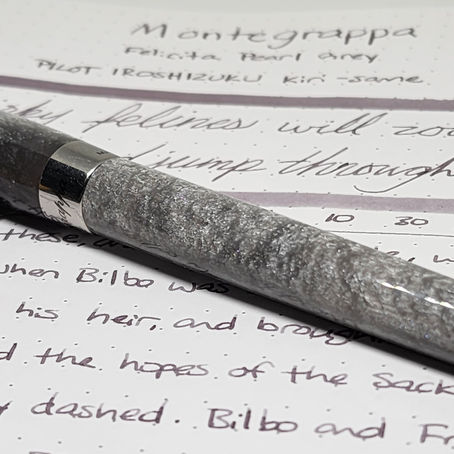 Montegrappa
Felicita Pearl Grey
PILOT IROSHIZUKU Kiri-same
felines will
jump through
10 30
these,
when Bilbo was
his heir, and
the hopes of the Sack
dashed. Bilbo and